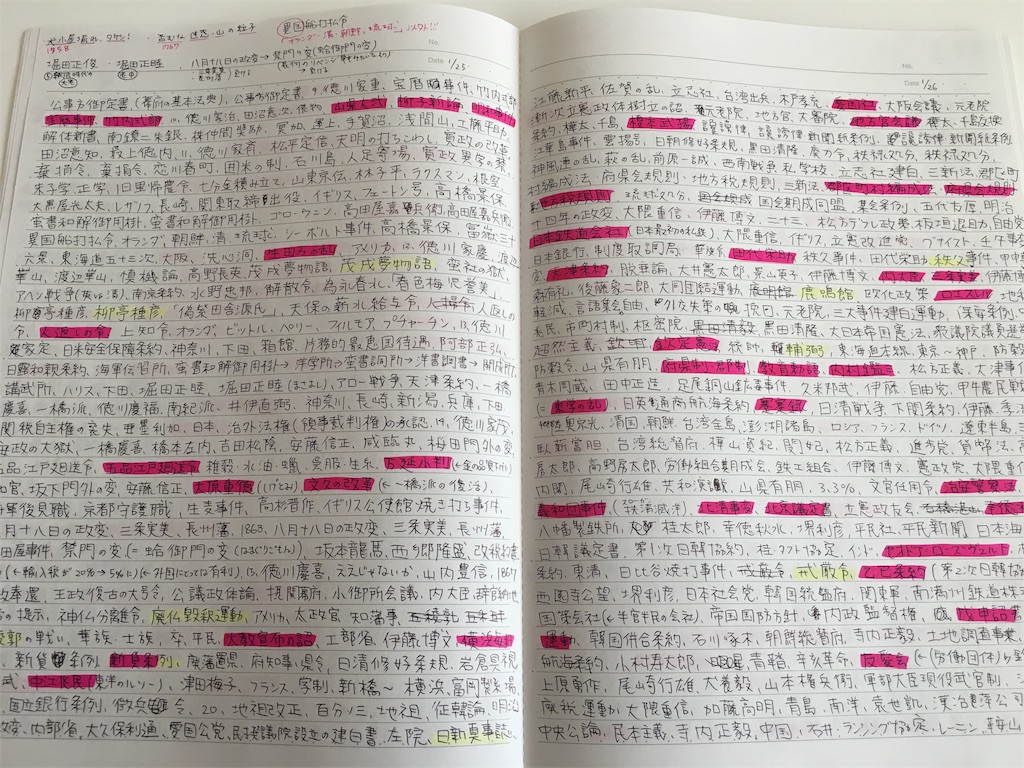 異国船打払令
1758
1767
堀田正俊・堀田正睦
八月十八日の政変→禁門の変(蛤御門の変)
No.
Date 1/25
公事方御定書(幕府の基本法典)、公事方御定書、9、徳川家重、宝暦事件、竹内式部
宝暦事件、竹内式部、10、徳川家治、田沼意次、俵物、山県大弐、柳子新論、明和事件
解体新書、南鐐二朱銀、株仲間奨励、冥加、運上、手賀沼、浅間山、工藤平助
田沼意知、最上徳内、11、徳川家斉、松平定信、天明の打ちこわし、寛政の改革、
棄捐令、棄捐令、恋川春町、囲米の制、石川島、人足寄場、寛政異学の禁、
朱子学、正学、旧里帰農令、七分金積み立て、山東京伝、林子平、ラクスマン、根室
大黒屋光太夫、レザノフ、長崎、関東取締出役、イギリス、フェートン号、高橋景保、
蛮書和解御用掛、蛮書和解御用掛、ゴローウニン、高田屋嘉兵衛、高田屋嘉兵衛
異国船打払令、オランダ、朝鮮、清、琉球、シーボルト事件、高橋景保、富嶽三十
六景、東海道五十三次、大阪、洗心洞、生田万の乱、アメリカ、12、徳川家慶、渡辺
華山、渡辺華山、慎機論、高野長英、戊戌夢物語、戊戌夢物語、蛮社の獄、
アヘン戦争(英vs清)、南京条約、水野忠邦、解散令、為永春水、春色梅児誉美、
柳亭種彦、柳亭種彦、偐紫田舎源氏、天保の薪水給与令、人返しの
令、人返しの令、上知令、オランダ、ビッドル、ペリー、フィルモア、プチャーチン、13、徳川
家定、日米安全保障条約、神奈川、下田、箱館、片務的最恵国待遇、阿部正弘、
日露和親条約、海軍伝習所、蛮書和解御用掛→洋学所→蕃書調所→洋書調書→開成所、
講武所、ハリス、下田、堀田正睦、堀田正睦(まさよし)、アロー戦争、天津条約、一橋
慶喜、一橋派、徳川慶福、南紀派、井伊直弼、神奈川、長崎、新潟、兵庫、下田、
関税自主権の喪失、亜墨利加、日本、治外法権(領事裁判権)の承認、14、徳川家茂、
安政の大獄、一橋慶喜、橋本左内、吉田松陰、安藤信正、咸臨丸、桜田門外の変、
五品江戸廻送令、五品江戸廻送令、雑穀・水油・蝋、呉服・生糸、万延小判
和宮、坂下門外の変、安藤信正、大原重徳(しげとみ)、文久の改革(←一橋派の復活)、
将軍後見職、京都守護職、生麦事件、高杉晋作、イギリス公使館焼き打ち事件、
八月十八日の政変、三条実美、長州藩、1863、八月十八日の政変、三条実美、長州藩、
池田屋事件、禁門の変(=蛤御門の変(はまぐりごもん)、坂本龍馬、西郷隆盛、改税約書
(←輸入税が20%→5%に)(←外国にとっては有利)、15、徳川慶喜、ええじゃないか、山内豊信、1867
大政奉還、王政復古の大号令、公議政体論、摂関幕府、小御所会議、内大臣、辞官納地
の提示、神仏分離令、廃仏毀釈運動、アメリカ、太政官、知藩事
五稜郭の戦い、華族・士族・卒・平民、大教宣布の詔、工部省、伊藤博文、横浜毎日
新貨条例、新貨条例、廃藩置県、府知事・県令、日清修好条規、岩倉具視
中江兆民(東洋のルソー)、津田梅子、フランス、学制、新橋～横浜、富岡製糸場、
国立銀行条例、徴兵令、20、地租改正、百分ノ三、地租、征韓論、明治六年
政変、内務省、大久保利通、愛国公党、民撰議院設立の建白書、左院、日新真事誌

No.
Date 1/26
江藤新平、佐賀の乱、立志社、台湾出兵、木戸孝允、愛国社、大阪会議、元老院
漸次立憲政体樹立の詔、元老院、地方官、大審院、地方官会議、樺太・千島交換
条約、樺太、千島、榎本武揚、讒謗律、讒謗律、新聞紙条例、讒謗律、新聞紙条例、
江華島事件、雲揚号、日朝修好条規、黒田清隆、廃刀令、秩禄処分、秩禄処分、
神風連の乱、萩の乱、前原一誠、西南戦争、私学校、立志社建白、三新法、郡区町
村編成法、府県会規則、地方税規則、三新法、郡区町村編成法、府県会規則、
地方税規則、琉球処分、国会期成同盟、集会条例、五代友厚、明治
十四年の政変、大隈重信、伊藤博文、三十三、松方デフレ政策、板垣退助、自由党
日本鉄道会社(日本最初の私鉄)、大隈重信、イギリス、立憲改進党、ブナイスト
日本銀行、制度取調局、華族令、田代栄助、秩父事件、田代栄助、秩父事件、甲申事
変、天津条約、脱亜論、大井憲太郎、景山英子、伊藤博文、内大臣
森有礼、後藤象二郎、大同団結運動、鹿鳴館、欧化政策、ロエスレル、地租
軽減、言論集会自由、外交失策の挽回、元老院、三大事件建白運動、保安条例
市町村制、枢密院、黒田清隆、大日本帝国憲法、衆議院議員選挙
超然主義、欽定、欽定憲法、統帥、輔弼、東海道本線、東京～神戸、防穀
防穀令、山県有朋、府県制・郡制、教育勅語、内村鑑三、松方正義、大津事件
青木周蔵、田中正造、足尾銅山鉱毒事件、久米邦武、伊藤、自由党、甲午農民戦争
(=東学の乱)、日英通商航海条約、日清戦争、下関条約、伊藤、李鴻章
陸奥宗光、清国、朝鮮、台湾全島、澎湖諸島、ロシア、フランス、ドイツ、遼東半島、三
臥薪嘗胆、台湾総督府、樺山資紀、閔妃、松方正義、進歩党、貨幣法
房太郎、高野房太郎、労働組合期成会、鉄工組合、伊藤博文、憲政党、大隈重信
内閣、尾崎行雄、共和演説、山県有朋、3.3%、文官任用令、治安警察法
義和団事件(扶清滅洋)、北清事変、北京議定書、立憲政友会
八幡製鉄所、桂太郎、幸徳秋水、堺利彦、平民社、平民新聞、日本海
日韓議定書、第1次日韓協約、桂・タフト協定、インド、セオドア・ローズヴェルト
条約、東清、日比谷焼打事件、戒厳令、戒厳令、乙巳条約(第2次日韓協約
西園寺公望、堺利彦、日本社会党、韓国統監府、関東軍、南満州鉄道株式
帝国在郷軍人会、帝国国防方針、内政監督権、戊申詔書
運動、韓国併合条約、石川啄木、朝鮮総督府、寺内正毅、土地調査事業
航海条約、小村寿太郎、青鞜、辛亥革命、友愛会(←(労働団体)
上原勇作、尾崎行雄、犬養毅、山本権兵衛、軍部大臣現役武官制
廃税運動、大隈重信、加藤高明、青島、南洋、袁世凱、漢冶萍公司
中央公論、民本主義、寺内正毅、中国、石井・ランシング協定、レーニン、鞍山